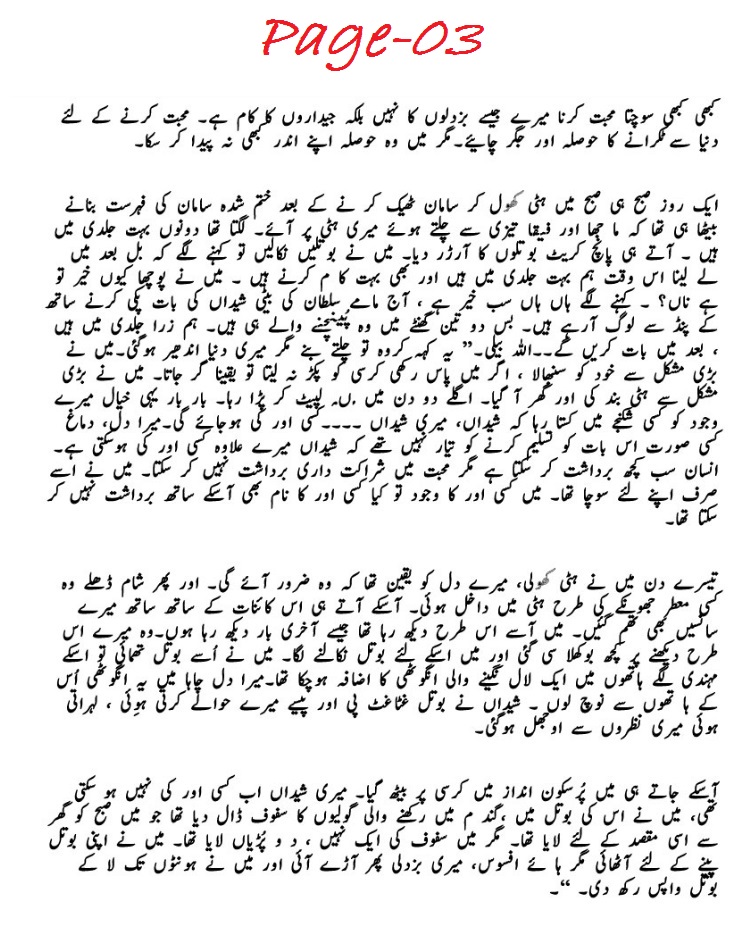 Page-03
کبھی کبھی سوچتا محبت کرنا میرے جیسے بزدلوں کا نہیں بلکہ جیداروں کا کام ہے۔ محبت کرنے کے لئے
دنیا سے ٹکرانے کا حوصلہ اور جگر چاہیے۔مگر میں وہ حوصلہ اپنے اندر کبھی نہ پیدا کر سکا۔
ایک روز صبح ہی صبح میں ہٹی کھول کر سامان ٹھیک کر نے کے بعد ختم شدہ سامان کی فہرست بنانے
بیٹھا ہی تھا کہ ما جھا اور فیقا تیزی سے چلتے ہوئے میری ہٹی پر آئے۔ لگتا تھا دونوں بہت جلدی میں
ہیں ۔ آتے ہی پانچ کریٹ بوتلوں کا آرڈر دیا۔ میں نے بوتلیں نکالیں تو کہنے لگے کہ بل بعد میں
لے لینا اس وقت ہم بہت جلدی میں ہیں اور بھی بہت کا م کرنے ہیں ۔ میں نے پوچھا کیوں خیر تو
ہے ناں؟ ۔ کہنے لگے ہاں ہاں سب خیر ہے ، آج مامے سلطان کی بیٹی شیداں کی بات پکی کرنے ساتھ
کے پنڈ سے لوگ آرہے ہیں۔ بس دو تین گھنٹے میں وہ پہنچنے والے ہی ہیں۔ ہم زرا جلدی میں ہیں
، بعد میں بات کریں گے۔۔اللہ بیلی۔” یہ کہہ کروہ تو چلتے بنے مگر میری دنیا اندھیر ہوگئی۔میں نے
بڑی مشکل سے خود کو سنبھالا ، اگر میں پاس رکھی کرسی کو پکڑ نہ لیتا تو یقینا گر جاتا۔ میں نے بڑی
مشکل سے ہٹی بند کی اور گھر آ گیا۔ اگلے دو دن میں لپیٹ کر پڑا رہا۔ بار بار یہی خیال میرے
وجود کو کسی شکنجے میں کستا رہا کہ شیداں، میری شیداں ۔۔۔۔کسی اور کی ہوجائے گی۔میرا دل، دماغ
کسی صورت اس بات کو تسلیم کرنے کو تیار نہیں تھے کہ شیداں میرے علاوہ کسی اور کی ہوسکتی ہے۔
انسان سب کچھ برداشت کر سکتا ہے مگر محبت میں شراکت داری برداشت نہیں کر سکتا۔ میں نے اسے
صرف اپنے لئے سوچا تھا۔ میں کسی اور کا وجود تو کیا کسی اور کا نام بھی آسکے ساتھ برداشت نہیں کر
سکتا تھا۔
تیسرے دن میں نے ہٹی کھولی، میرے دل کو یقین تھا کہ وہ ضرور آئے گی۔ اور پھر شام ڈھلے وہ
کسی معطر جھونکے کی طرح ہٹی میں داخل ہوئی۔ آسکے آتے ہی اس کائنات کے ساتھ ساتھ میرے
سانسیں بھی تھم گئیں۔ میں آسے اس طرح دیکھ رہا تھا جیسے آخری بار دیکھ رہا ہوں۔وہ میرے اس
طرح دیکھنے پر کچھ بوکھلا سی گئی اور میں اسکے لئے بوتل نکالنے لگا۔ میں نے اُسے بوتل تھمائی تو اسکے
مہندی لگے ہاتھوں میں ایک لال نگینے والی انگوٹھی کا اضافہ ہوچکا تھا۔میرا دل چاہا میں یہ انگوٹھی اُس
کے ہا تھوں سے نوچ لوں ۔ شیداں نے بوتل غٹاغٹ پی اور پیسے میرے حوالے کرتی ہوئی ، لہراتی
ہوئی میری نظروں سے اوجھل ہوگئی۔
آسکے جاتے ہی میں پُرسکون انداز میں کرسی پر بیٹھ گیا۔ میری شیداں اب کسی اور کی نہیں ہو سکتی
تھی، میں نے اس کی بوتل میں ،گند م میں رکھنے والی گولیوں کا سفوف ڈال دیا تھا جو میں صبح کو گھر
سے اسی مقصد کے لئے لایا تھا۔ مگر میں سفوف کی ایک نہیں ، د و پُڑیاں لایا تھا۔ میں نے اپنی بوتل
پینے کے لئے آٹھائی مگر ہا ئے افسوس، میری بزدلی پھر آڑے آئی اور میں نے ہونٹوں تک لا کے
بوتل واپس رکھ دی۔ “۔